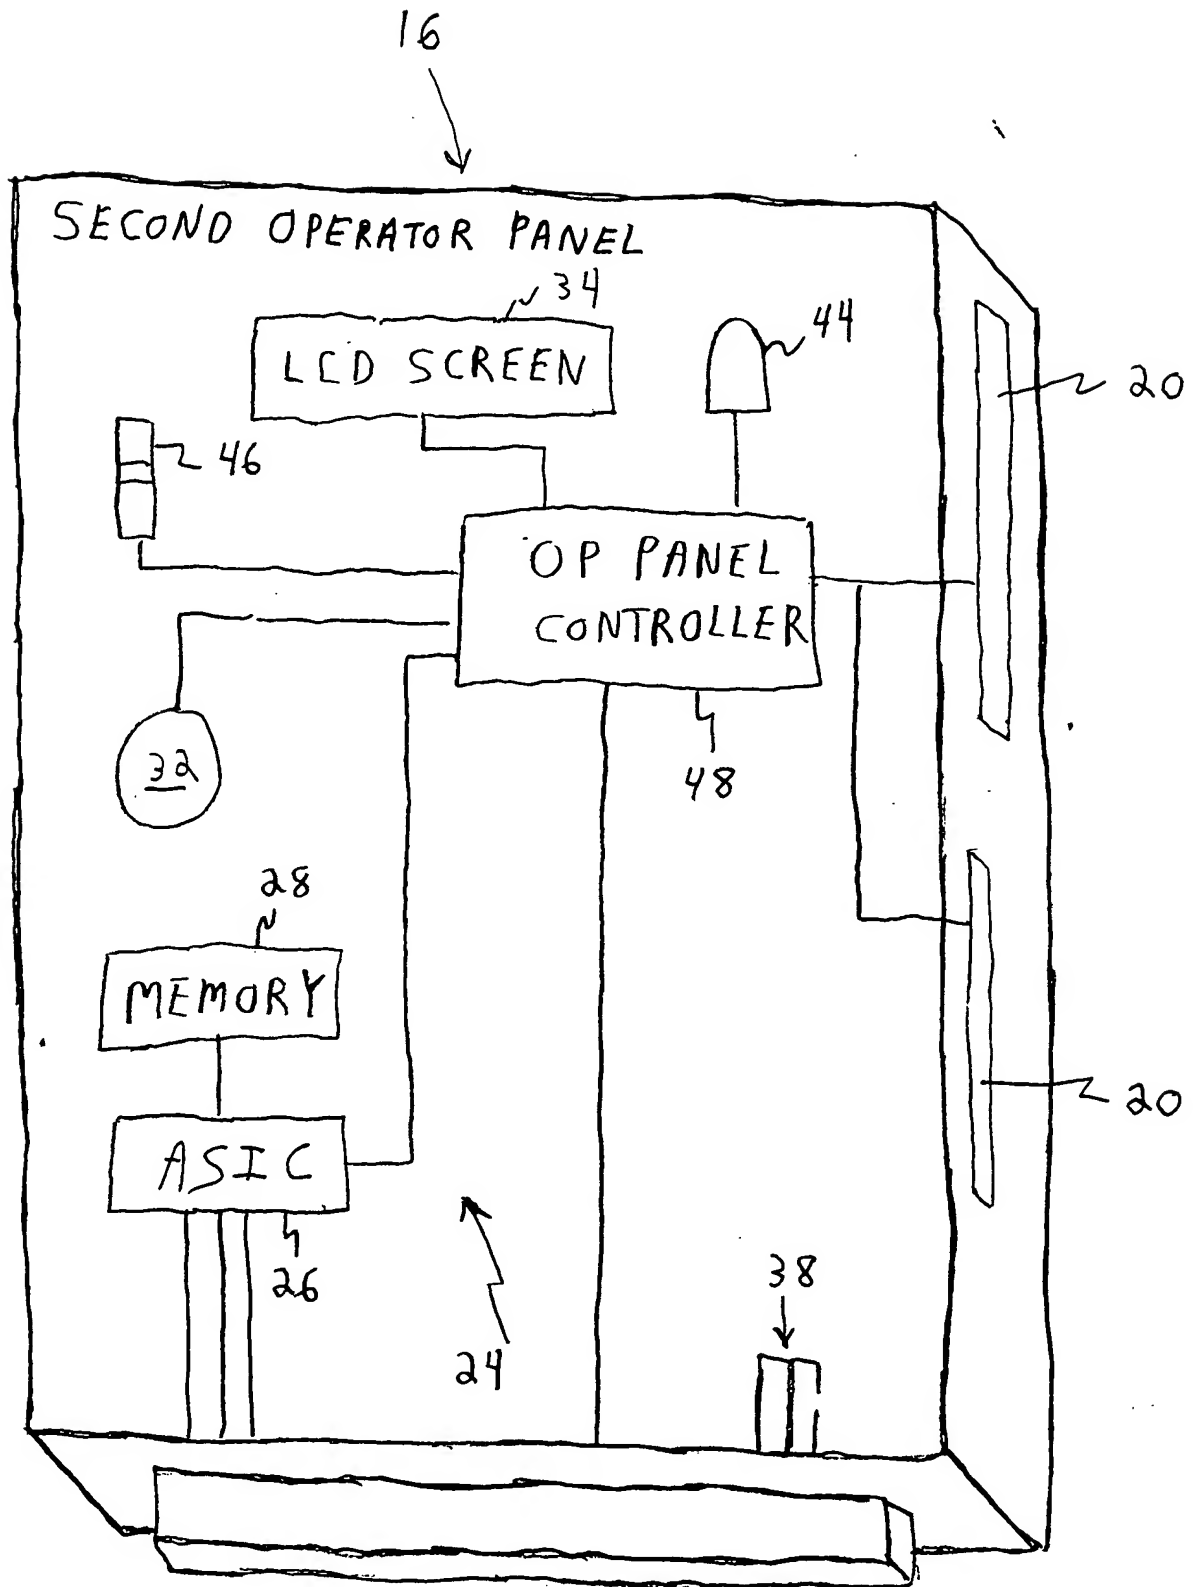 16
SECOND OPERATOR PANEL
34
LCD SCREEN
44
20
46
OP PANEL
CONTROLLER
32
48
28
MEMORY
20
ASIC
26
38
24